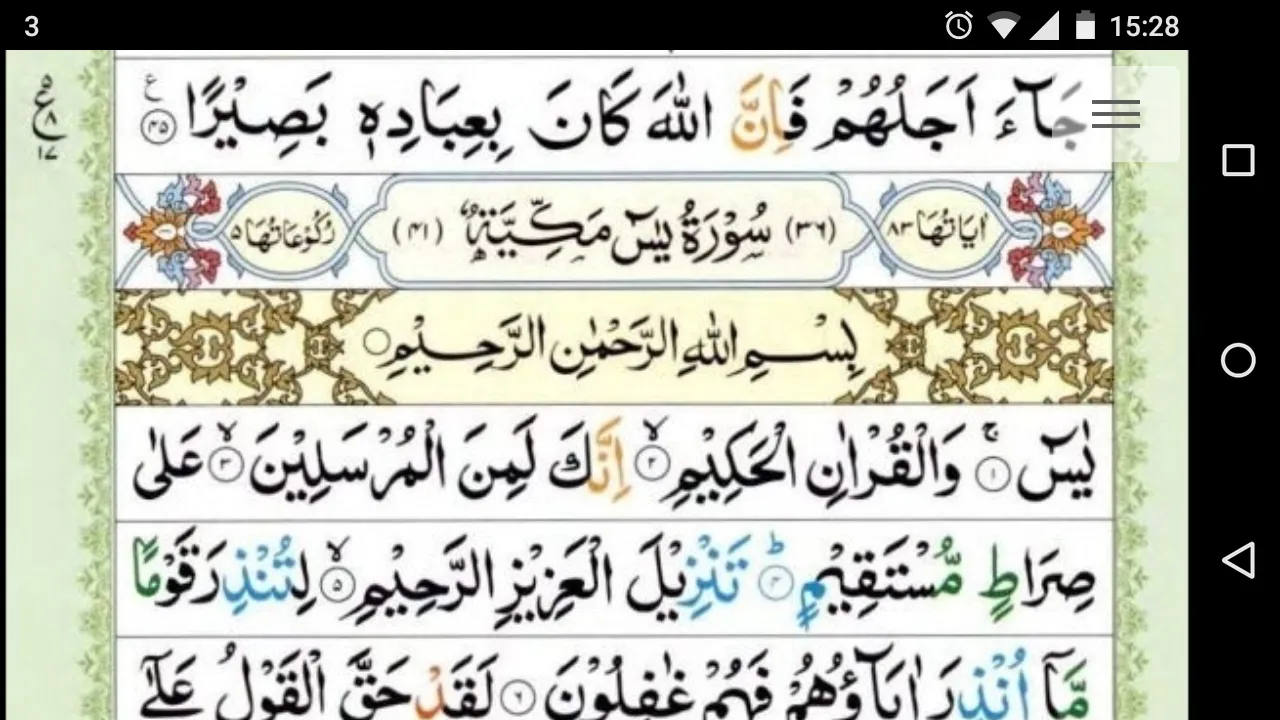 3 15:28
جَآءَ اَجَلُهُمْ فَاِنَّ اللّٰهَ كَانَ بِعِبَادِهٖ بَصِيْرًا ﴿۴۵﴾ ع
۵ ع ۸ ۱۷
اٰيَاتُهَا ۸۳ (۳۶) سُوْرَةُ يٰسٓ مَكِّيَّةٌ (۴۱) رُكُوْعَاتُهَا ۵
بِسْمِ اللّٰهِ الرَّحْمٰنِ الرَّحِيْمِ
يٰسٓ ۚ﴿۱﴾ وَالْقُرْاٰنِ الْحَكِيْمِ ۙ﴿۲﴾ اِنَّكَ لَمِنَ الْمُرْسَلِيْنَ ۙ﴿۳﴾ عَلٰى
صِرَاطٍ مُّسْتَقِيْمٍ ؕ﴿۴﴾ تَنْزِيْلَ الْعَزِيْزِ الرَّحِيْمِ ۙ﴿۵﴾ لِتُنْذِرَ قَوْمًا
مَّاۤ اُنْذِرَ اٰبَآؤُهُمْ فَهُمْ غٰفِلُوْنَ ﴿۶﴾ لَقَدْ حَقَّ الْقَوْلُ عَلٰٓى